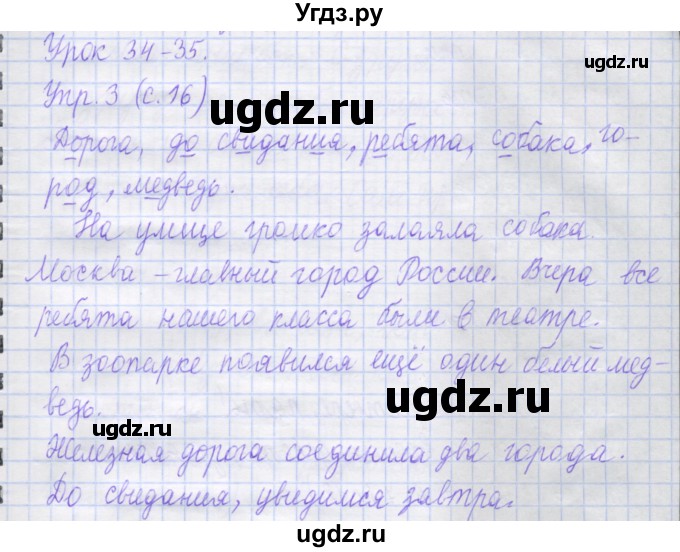 Угдз.ру
Урок 34-35.
ugdz.ru
Упр. 3 (с. 16)
ugdz.ru
Дорога, до свидания, ребята, собака, го-
род, медведь.
На улице громко залаяла собака.
Москва – главный город России. Вчера все
ребята нашего класса были в театре.
В зоопарке появился ещё один белый мед-
ugdz.ru
ведь.
ugdz.ru
Железная дорога соединила два города.
До свидания, увидимся завтра.
ugdz.ru